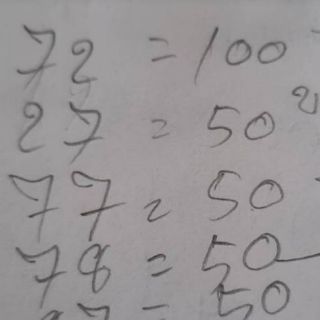 72 = 100
27 = 50
77 = 50
78 = 50
87 = 50